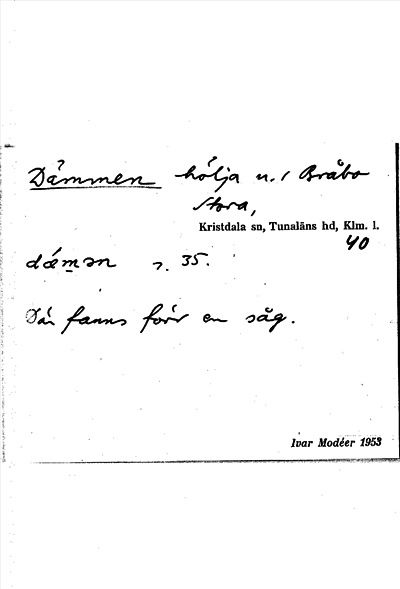 Dämmen hölja u. / Bråbo
Stora,
Kristdala sn, Tunaläns hd, Klm. l.
40
dǽmən s. 35.
Där fanns förr en såg.
Ivar Modéer 1953